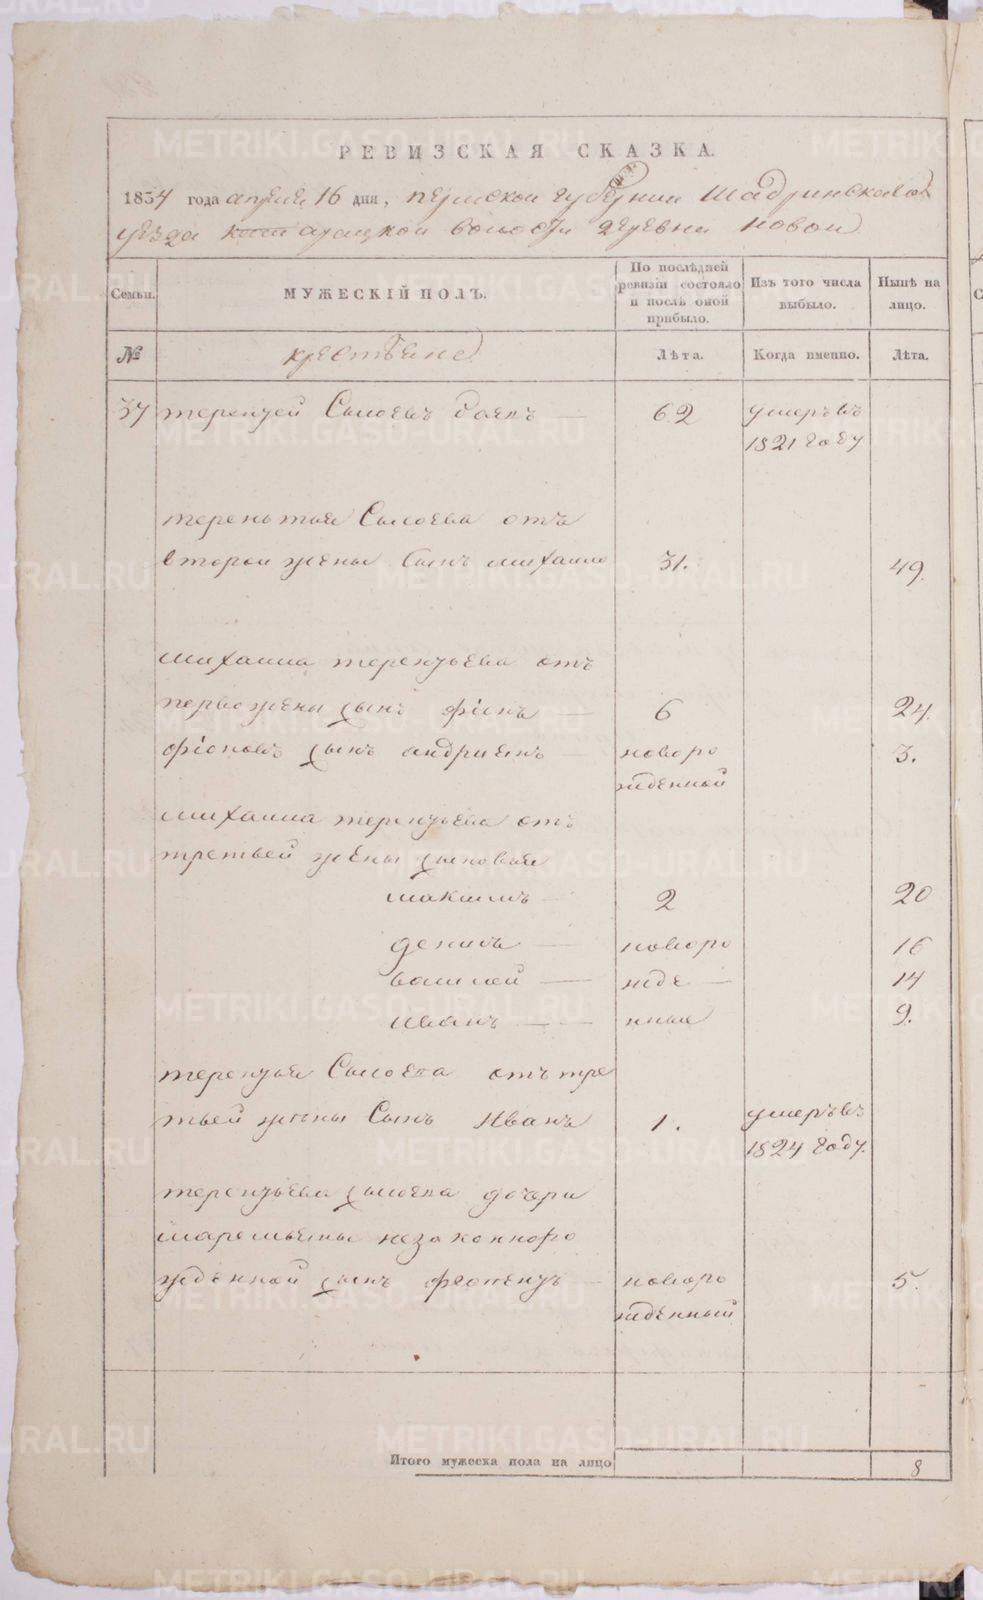 РЕВИЗСКАЯ СКАЗКА.
1834 года апреля 16 дня, пермской губернии Шадринскаго
уезда арацкой волости деревни новой
Семьи.
МУЖЕСКІЙ ПОЛЪ.
По послѣдней ревизіи состояло и послѣ оной прибыло.
Изъ того числа выбыло.
Нынѣ на лицо.
№
крестьяне
Лѣта.
Когда именно.
Лѣта.
37 терентей Сысоевъ — 62 умеръ въ
1821 году
терентья Сысоева отъ
второй жены Сынъ михаило 31. 49.
михаила терентьева отъ
первой жены сынъ фіонъ — 6 24.
фіоновъ сынъ андриянъ — новоро 3.
жденный
михаила терентьева отъ
третьей жены сыновья
максимъ — 2 20
денисъ — новоро 16
василей — жде — 14
иванъ — нныя 9.
терентья Сысоева отъ тре
тьей жены Сынъ Иванъ 1. умеръ въ
1824 году.
терентьева сысоева дочери
маремьяны незаконноро
жденной сынъ — новоро 5.
жденный
Итого мужеска пола на лицо 8
METRIKI.GASO-URAL.RU